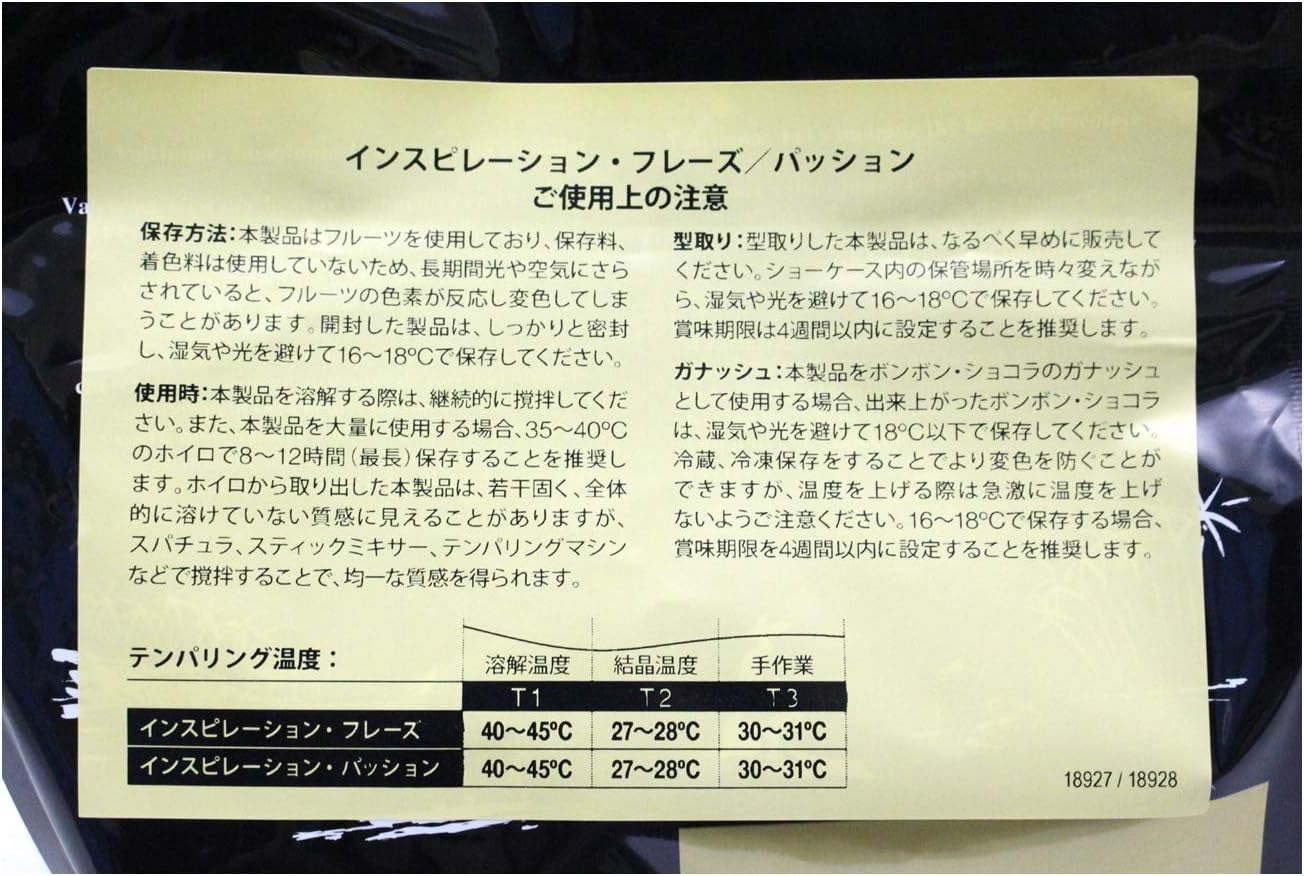 インスピレーション・フレーズ／パッション
ご使用上の注意
Va
保存方法：本製品はフルーツを使用しており、保存料、
着色料は使用していないため、長期間光や空気にさら
されていると、フルーツの色素が反応し変色してしま
うことがあります。開封した製品は、しっかりと密封
し、湿気や光を避けて16～18ºCで保存してください。
使用時：本製品を溶解する際は、継続的に撹拌してくだ
さい。また、本製品を大量に使用する場合、35～40ºC
のホイロで8～12時間（最長）保存することを推奨し
ます。ホイロから取り出した本製品は、若干固く、全体
的に溶けていない質感に見えることがありますが、
スパチュラ、スティックミキサー、テンパリングマシン
などで撹拌することで、均一な質感を得られます。
型取り：型取りした本製品は、なるべく早めに販売して
ください。ショーケース内の保管場所を時々変えなが
ら、湿気や光を避けて16～18ºCで保存してください。
賞味期限は4週間以内に設定することを推奨します。
ガナッシュ：本製品をボンボン・ショコラのガナッシュ
として使用する場合、出来上がったボンボン・ショコラ
は、湿気や光を避けて18ºC以下で保存してください。
冷蔵、冷凍保存をすることでより変色を防ぐことが
できますが、温度を上げる際は急激に温度を上げ
ないようご注意ください。16～18ºCで保存する場合、
賞味期限を4週間以内に設定することを推奨します。
テンパリング温度： 溶解温度 結晶温度 手作業
T1 T2 T3
インスピレーション・フレーズ 40～45ºC 27～28ºC 30～31ºC
インスピレーション・パッション 40～45ºC 27～28ºC 30～31ºC
18927 / 18928